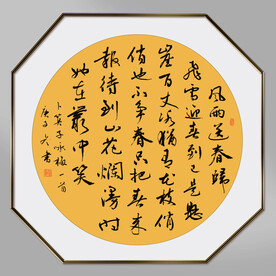 風雨送春歸
飛雪迎春到已是懸
崖百丈冰猶有花枝俏
俏也不争春只把春来
報待到山花爛漫时
她在叢中笑
卜算子咏梅一首
庚子书